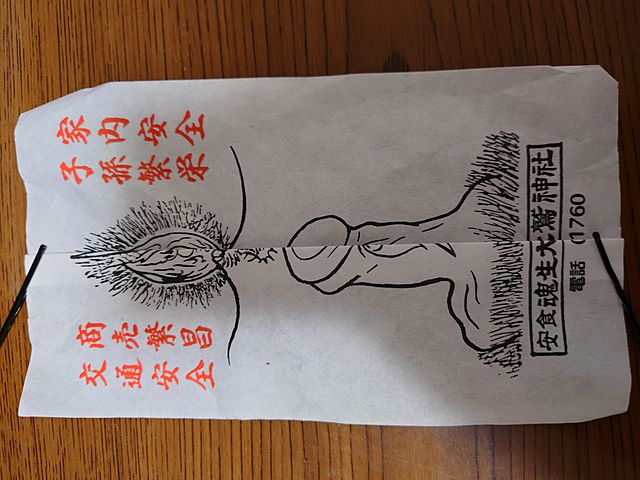 家内安全
子孫繁栄
商売繁昌
交通安全
安食魂生大鷲神社
電話 760